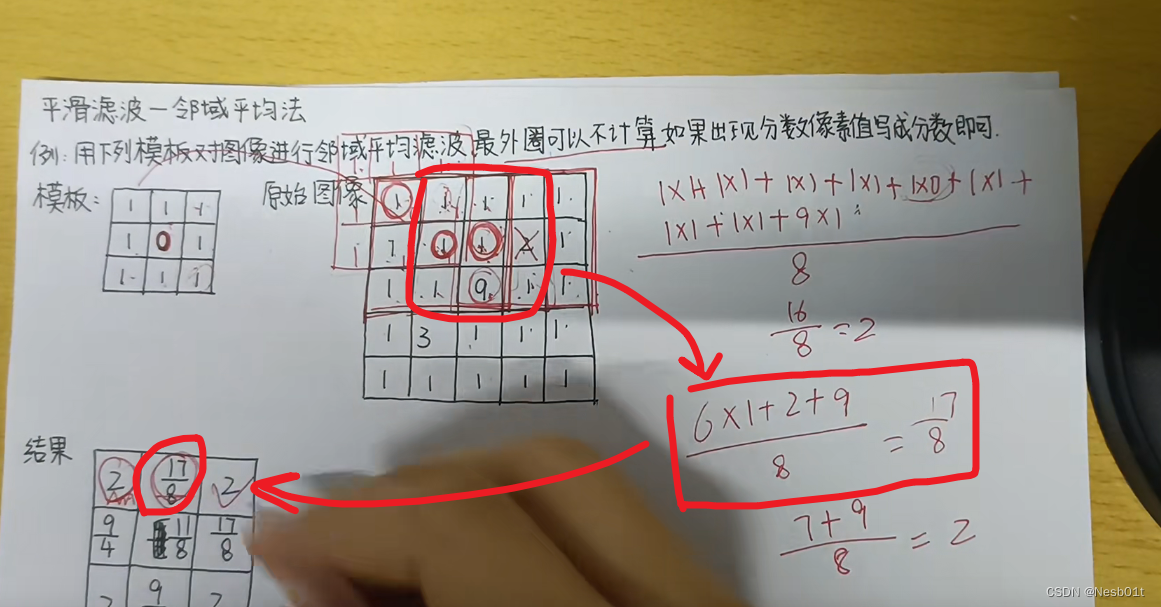 平滑滤波一邻域平均法
例:用下列模板对图像进行邻域平均滤波,最外圈可以不计算如果出现分数像素值写成分数即可.
模板:
1 1 1
1 0 1
1 1 1
原始图像
1 1 1 1 1
1 1 1 2 1
1 1 9 1 1
1 3 1 1 1
1 1 1 1 1
1X1+1X1+1X1+1X1+1X0+1X1+
1X1+1X1+9X1
8
16/8=2
6X1+2+9
8
=17/8
7+9
8
=2
结果
2 17/8 2
9/4 11/8 17/8
9
CSDN @Nesb01t